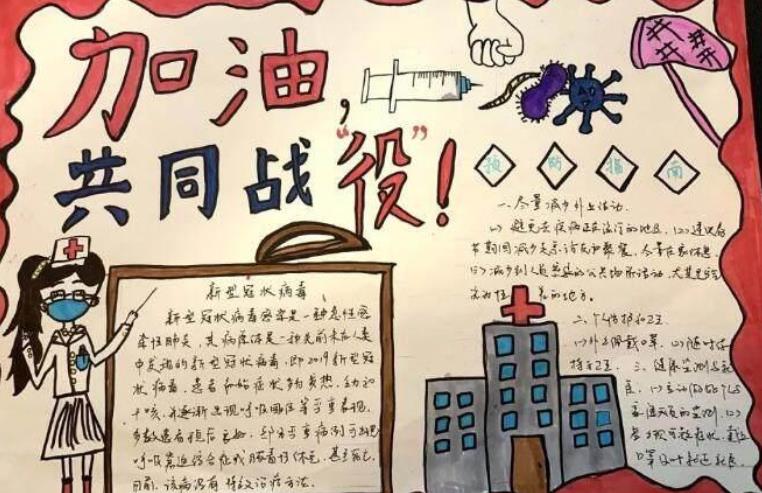 加油,
共同战“役”!
预 防 指 南
一、尽量减少外出活动.
(1) 避免去疾病正在流行的地区. (2) 建议春
节期间减少走亲访友和聚餐, 尽量在家休息.
(3) 减少到人员密集的公共场所活动, 尤其是空
气流动性 差的地方。
二、个人防护和卫
(1) 外出佩戴口罩. (2) 随时保
持手卫. 三、健康监测与
(1) 主动 (2)
新型冠状病毒
新型冠状病毒感染是一种急性感
染性肺炎, 其病原体是一种先前未在人类
中发现的新型冠状病毒, 即2019新型冠
状病毒, 患者初始症状多为发热、乏力和
干咳, 并逐渐出现呼吸困难等严重表现.
多数患者预后良好, 部分严重病例可出现
呼吸窘迫综合征或脓毒性休克, 甚至死亡.
目前, 该病没有特效治疗方法.